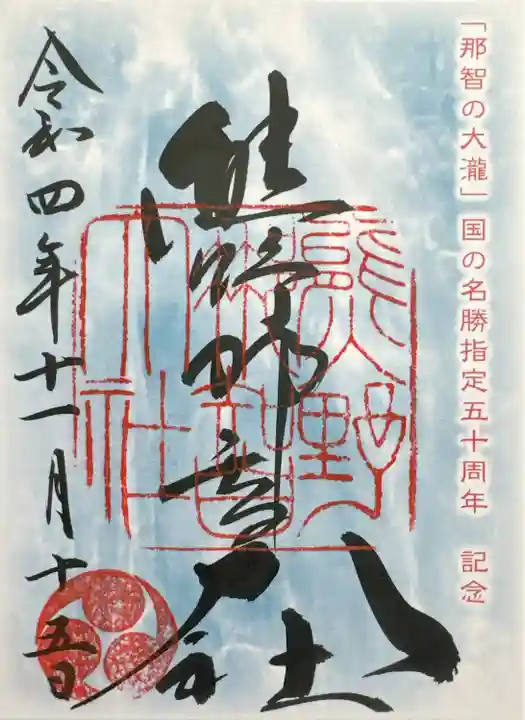 「那智の大瀧」国の名勝指定五十周年　記念
熊野那智大社
熊野那智大社
令和四年十一月十五日